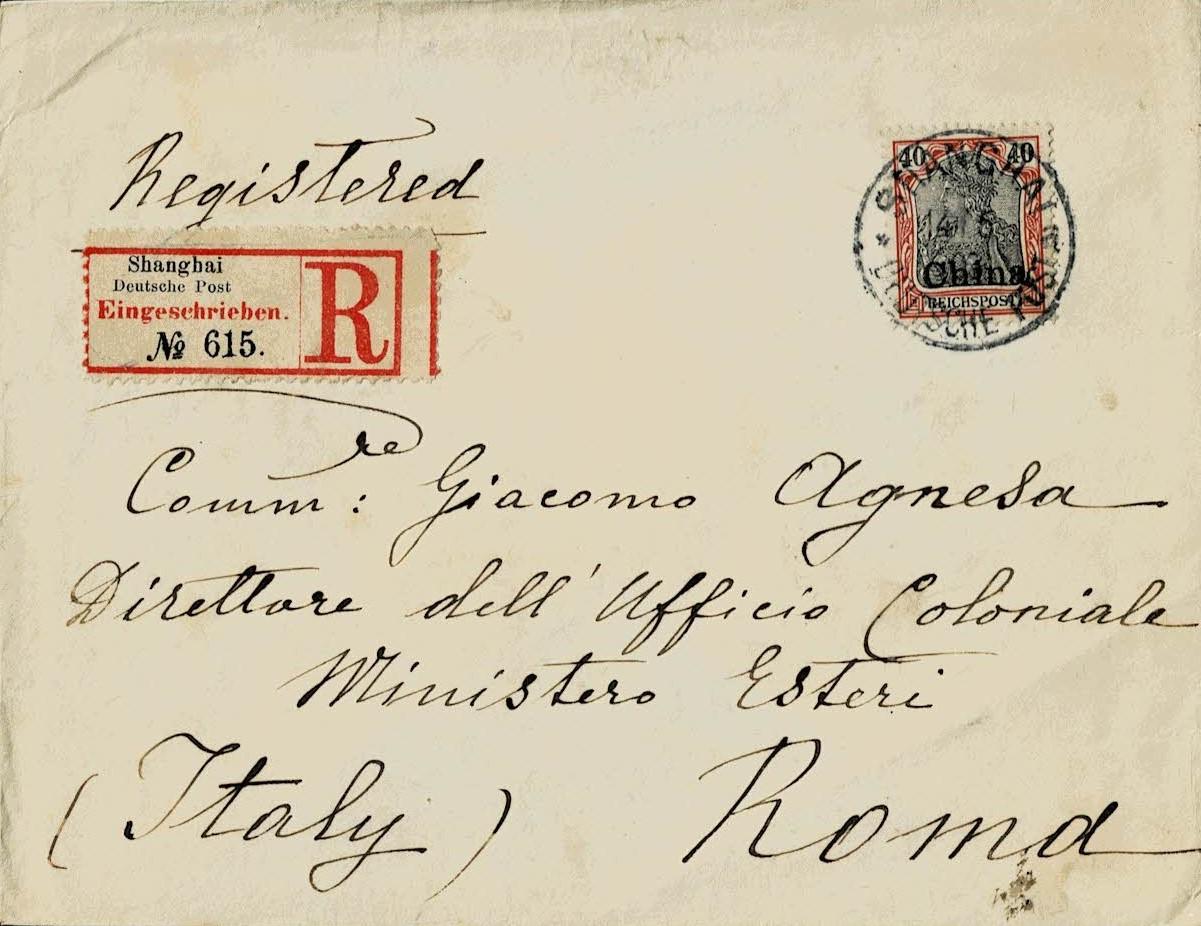 Registered
Shanghai
Deutsche Post
Eingeschrieben.
№ 615.
R
40 40
China
REICHSPOST
SHANGHAI
14/5
DEUTSCHE POST
Comm:re Giacomo Agnesa
Direttore dell' Ufficio Coloniale
Ministero Esteri
(Italy) Roma